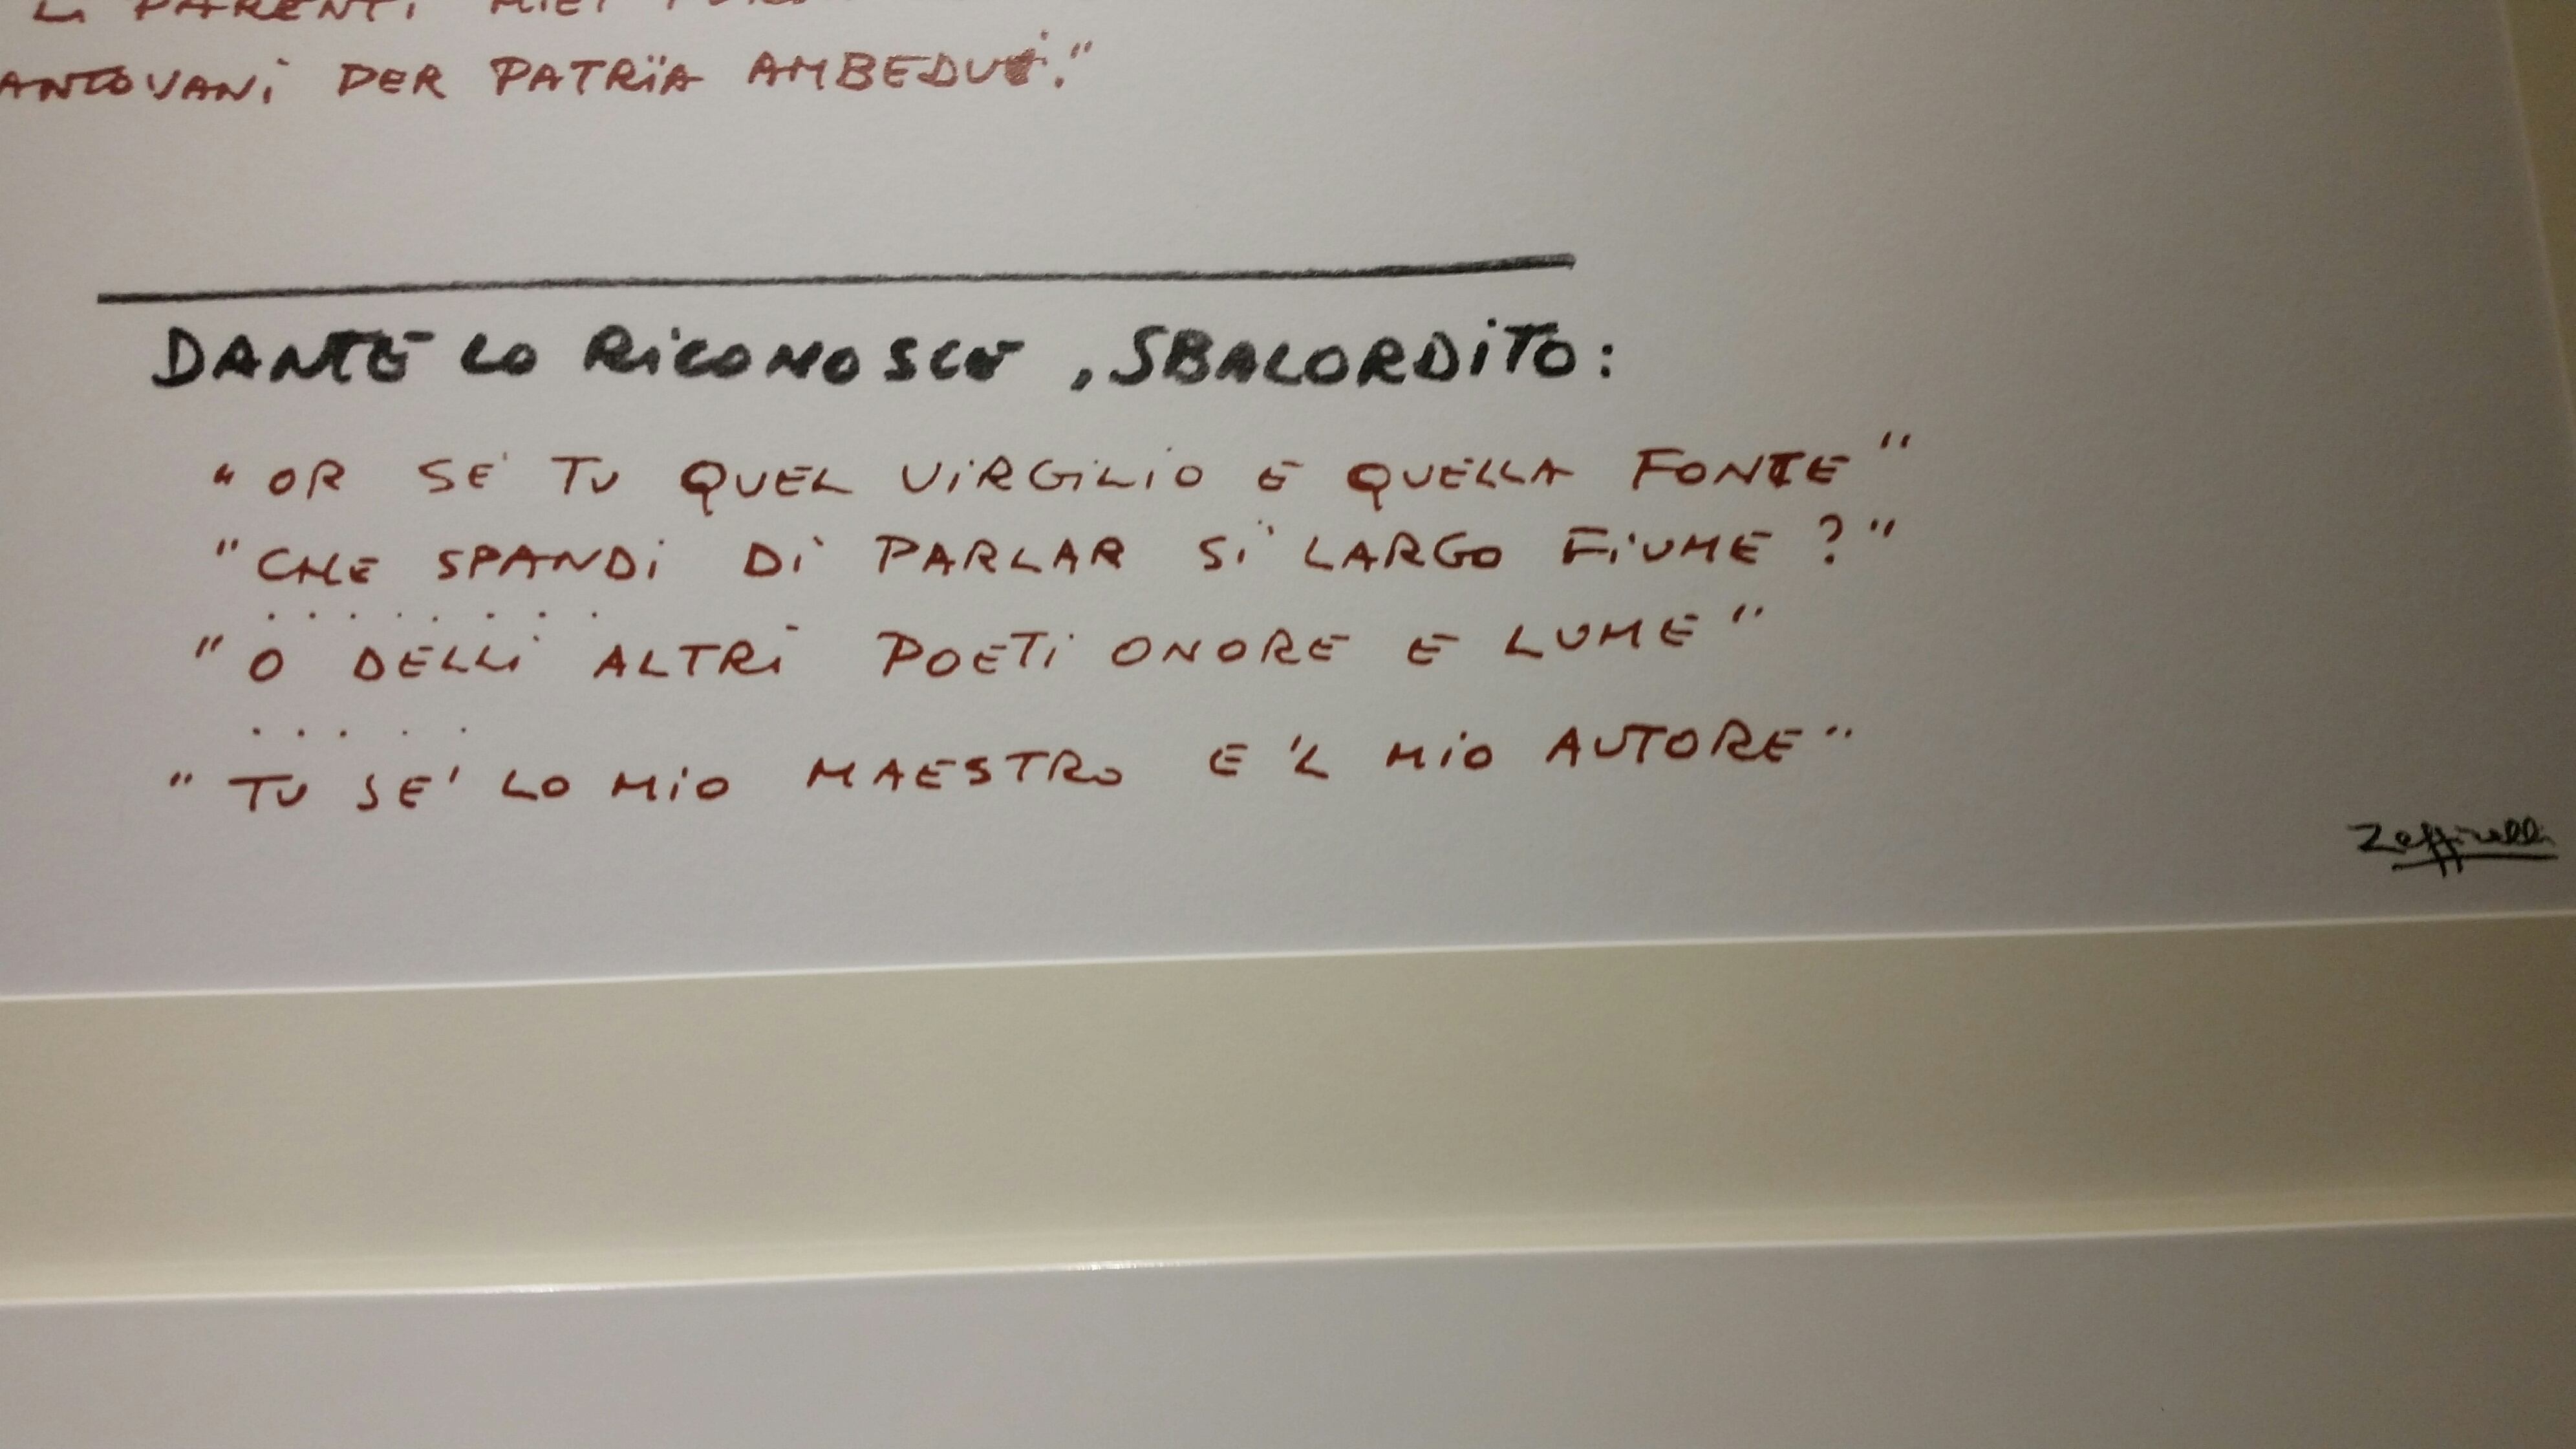 LI PARENTI MIEI
ANTOVANI PER PATRÏA AMBEDUI."
DANTE LO RICONOSCE, SBALORDITO:
"OR SE' TU QUEL VIRGILIO E QUELLA FONTE"
"CHE SPANDI DI PARLAR SÌ LARGO FIUME?"
. . . . . . . .
"O DELLI ALTRI POETI ONORE E LUME"
. . . . .
"TU SE' LO MIO MAESTRO E 'L MIO AUTORE"
Zeffirelli